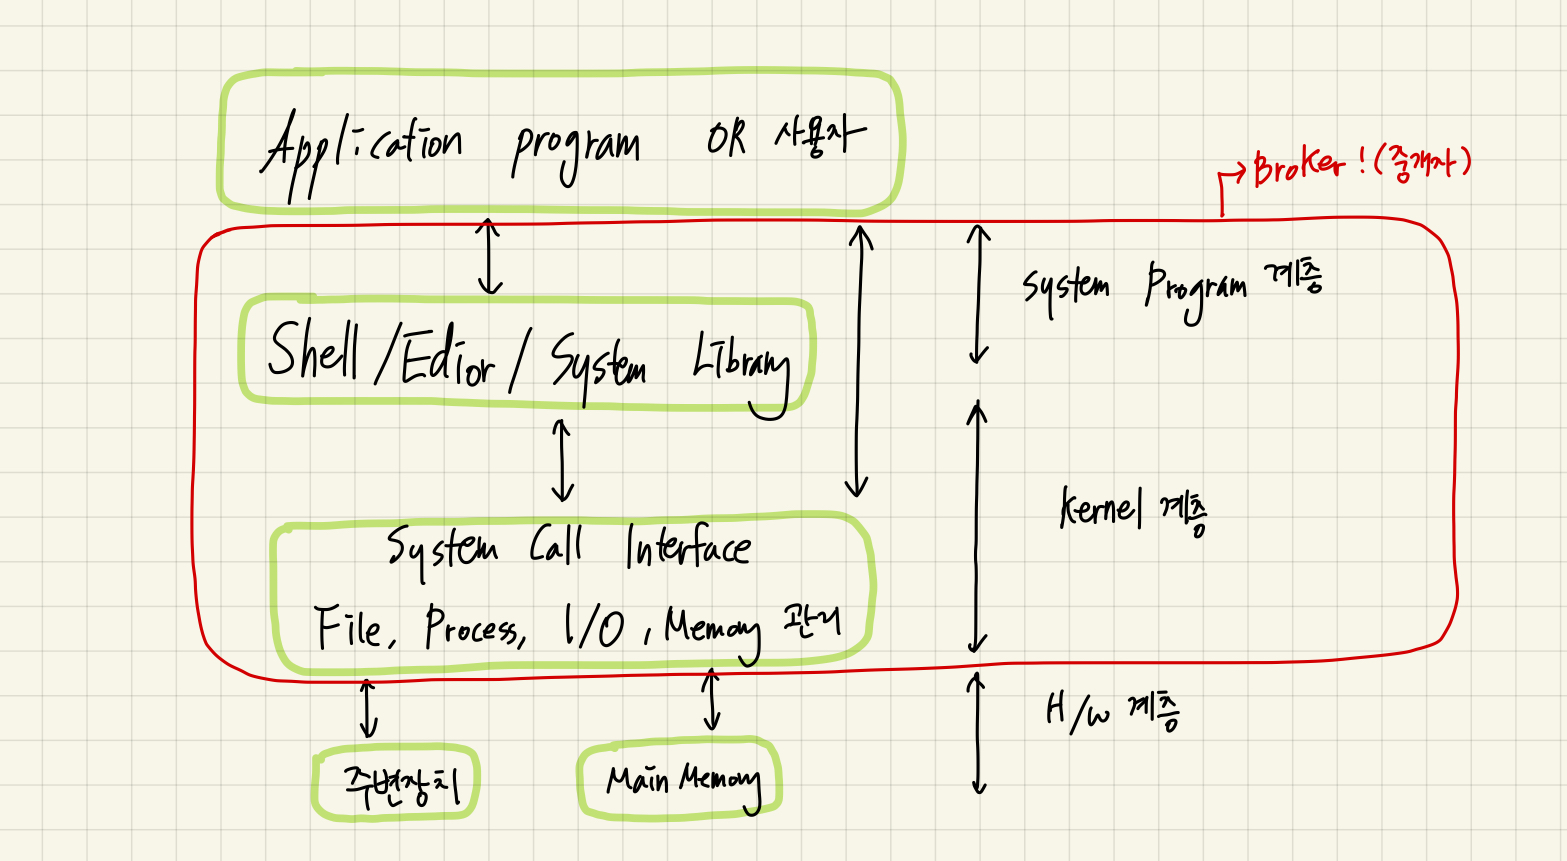 Application program OR 사용자
Broker ! (중개자)
System Program 계층
Shell / Edior / System Library
Kernel 계층
System Call Interface
File, Process, I/O, Memory 관리
H/W 계층
주변장치
Main Memory